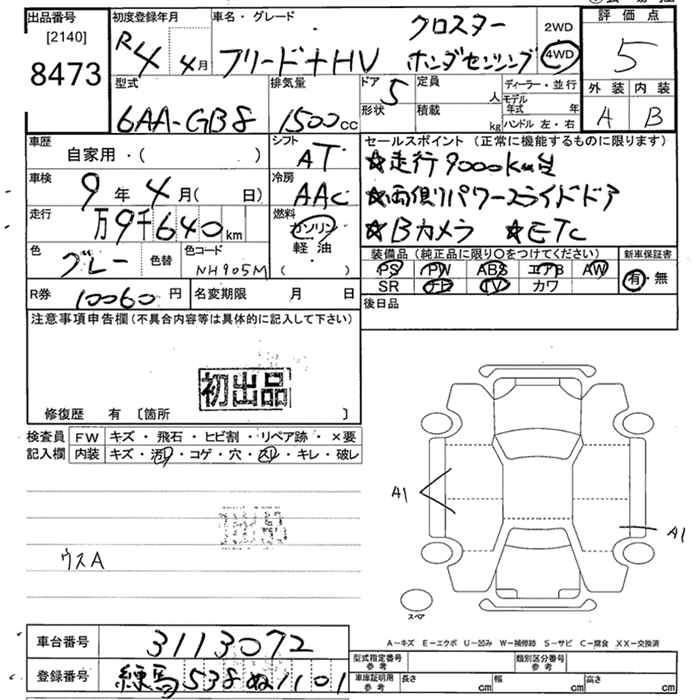 出品番号 初度登録年月 車名・グレード 評価点
[2140] R4 4月 フリード+HV クロスター ホンダセンシング 2WD 4WD 5
8473
型式 排気量 ドア 定員 ディーラー・並行 外装 内装
6AA-GB8 1500cc 5 人 モデル年式 年 A B
形状 積載 kg ハンドル 左・右
車歴 自家用・( ) シフト AT セールスポイント(正常に機能するものに限ります)
車検 9年4月( 日) 冷房 AAC ★走行9000km台
★両側パワースライドドア
走行 万9千640km 燃料 ガソリン 軽油 ( ) ★Bカメラ ★ETC
色 グレー 色替 色コード NH905M
装備品(純正品に限り○をつけてください) 新車保証書
PS PW ABS エアB AW 有・無
SR ナビ TV カワ
R券 10060円 名変期限 月 日 後日品
注意事項申告欄(不具合内容等は具体的に記入して下さい)
初出品
修復歴 有 〔箇所 〕
検査員 FW キズ・飛石・ヒビ割・リペア跡・×要
記入欄 内装 キズ・汚れ・コゲ・穴・スレ・キレ・破レ
A1
A1
ウスA
スペア
A-キズ E-エクボ U-凹み W-補修跡 S-サビ C-腐食 XX-交換済
車台番号 3113072
型式指定番号 参考 類別区分番号 参考
登録番号 練馬538ぬ1101
車庫証明用 参考 長さ cm 幅 cm 高さ cm